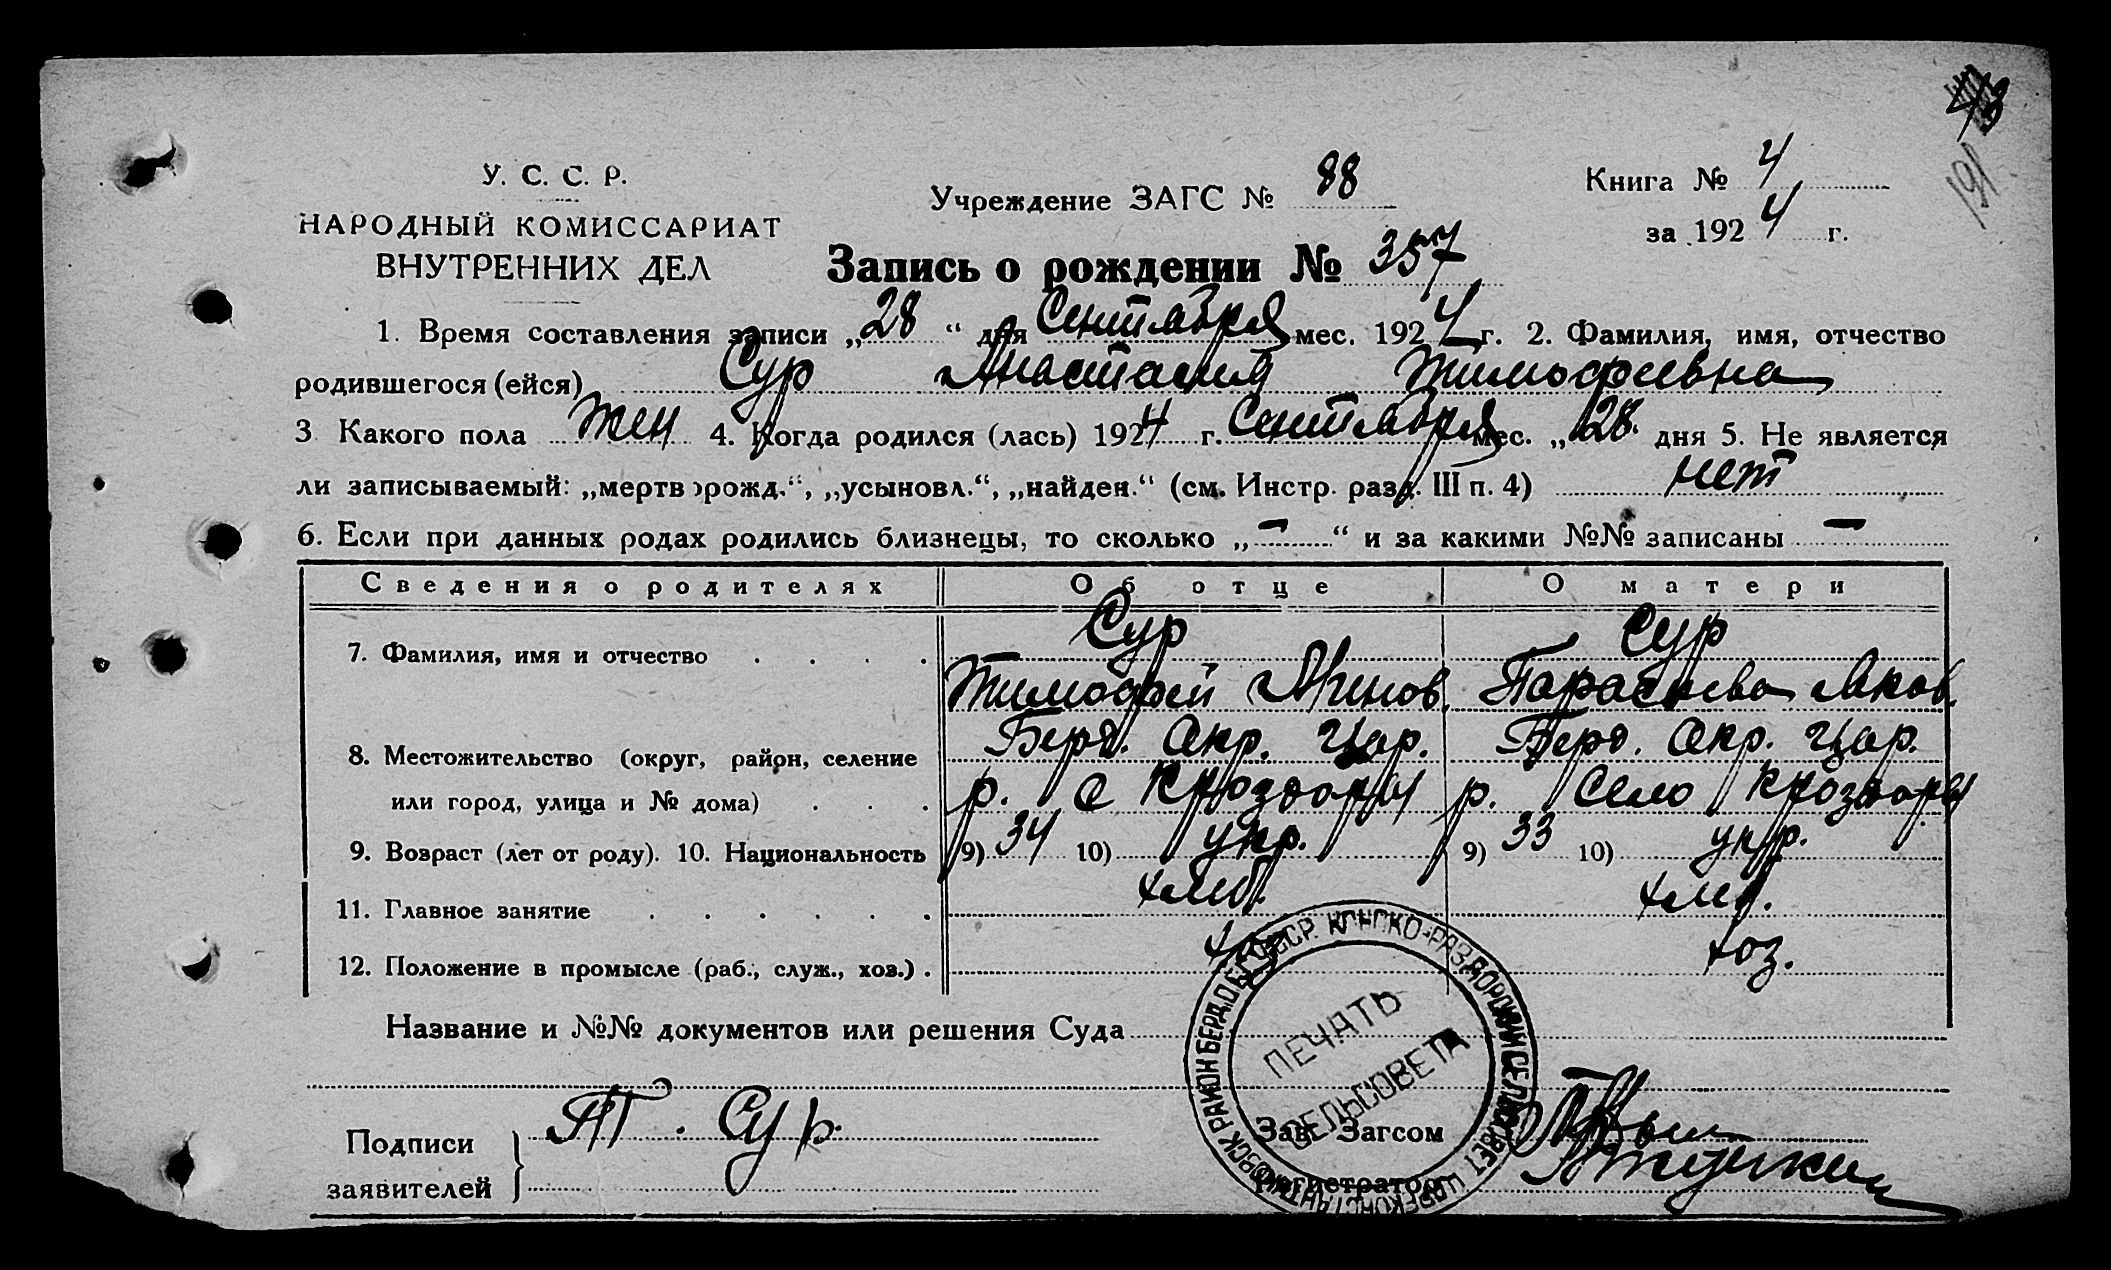 191
У. С. С. Р.
НАРОДНЫЙ КОМИССАРИАТ
ВНУТРЕННИХ ДЕЛ
Учреждение ЗАГС № 88
Книга № 4
за 1924 г.
Запись о рождении № 357
1. Время составления записи „28 “ дня Сентября мес. 1924 г. 2. Фамилия, имя, отчество
родившегося (ейся) Сур Анастасия Тимофеевна
3 Какого пола жен 4. Когда родился (лась) 1924 г. Сентября мес. „28. дня 5. Не является
ли записываемый: „мертворожд.“, „усыновл.“, „найден.“ (см. Инстр. разд. III п. 4) нет
6. Если при данных родах родились близнецы, то сколько „—“ и за какими №№ записаны —
Сведения о родителях Об отце О матери
7. Фамилия, имя и отчество Сур Сур
Тимофей Минов. Парасковья Яков.
8. Местожительство (округ, район, селение Берд. Окр. Цар. Берд. Окр. Цар.
или город, улица и № дома) р. С Кроздоры р. Село Кроздоры
9. Возраст (лет от роду). 10. Национальность 9) 34 10) укр. 9) 33 10) укр.
11. Главное занятие хлиб. хлиб.
12. Положение в промысле (раб., служ., хоз.) . хоз хоз.
Название и №№ документов или решения Суда
ПЕЧАТЬ
СЕЛЬСОВЕТА
Подписи
заявителей
Т. Сур
Зав. Загсом
Регистратор